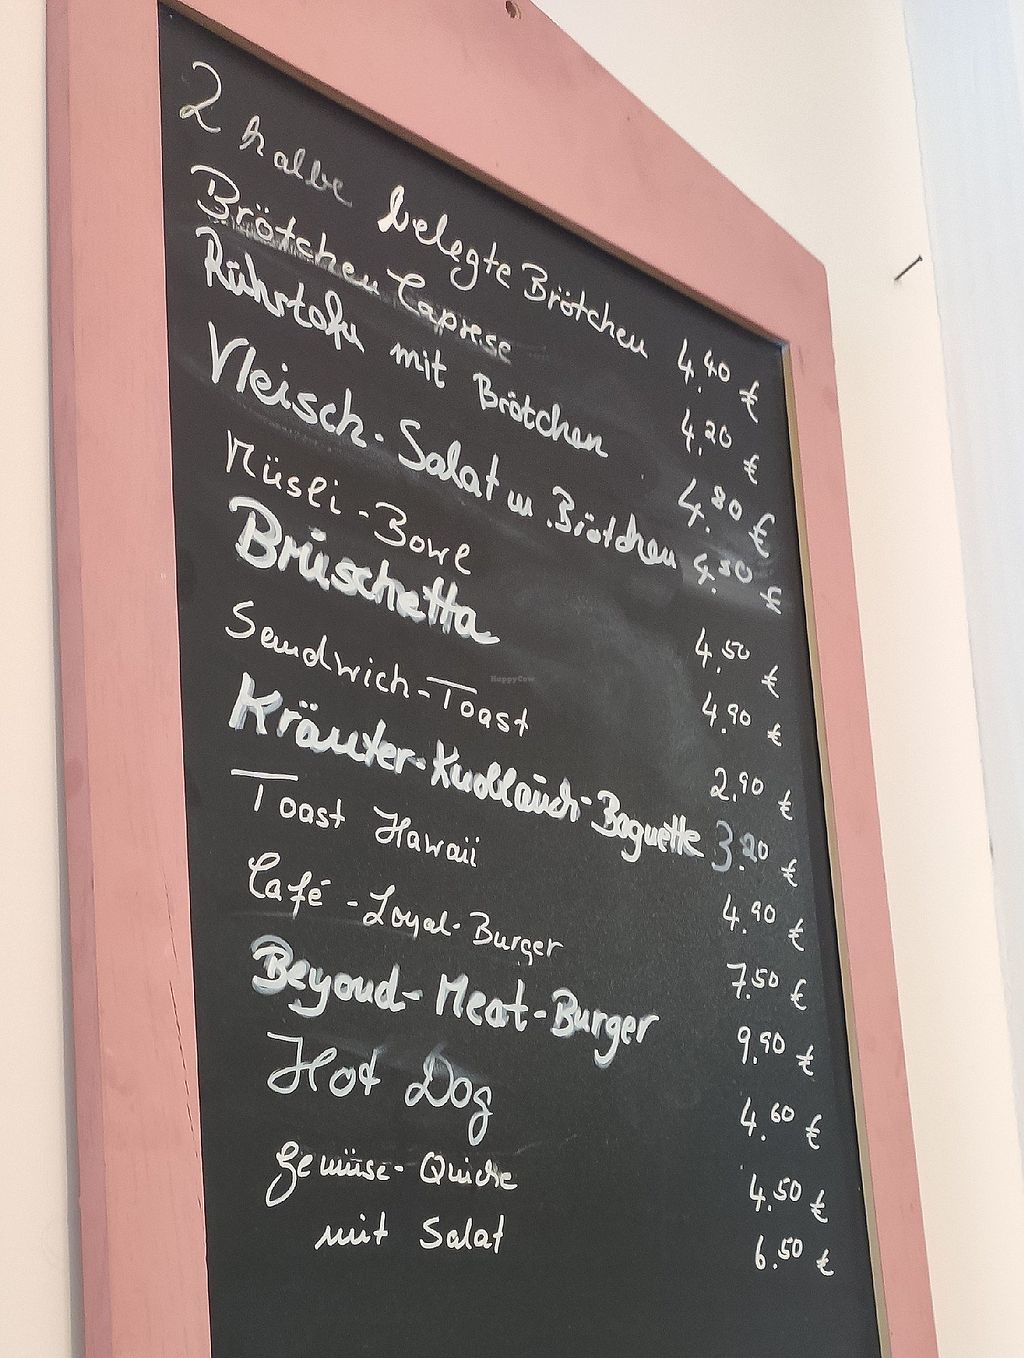 2 halbe belegte Brötchen 4.40 €
Brötchen Caprese 4.20 €
Rührtofu mit Brötchen 4.80 €
Vleisch-Salat m. Brötchen 4.50 €
Müsli-Bowl 4.50 €
Bruschetta 4.90 €
Sandwich-Toast 2.90 €
Kräuter-Knoblauch-Baguette 3.20 €
Toast Hawaii 4.90 €
Café-Loyal-Burger 7.50 €
Beyond-Meat-Burger 9.90 €
Hot Dog 4.60 €
Gemüse-Quiche 4.50 €
mit Salat 6.50 €
HappyCow